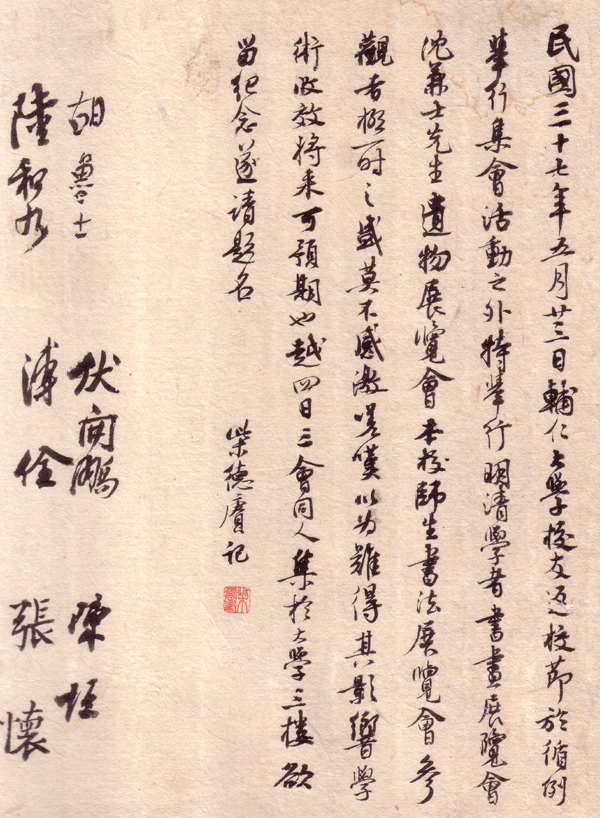 民國三十七年五月廿三日輔仁大學校友返校節於循例
舉行集會活動之外特舉行明清學者書畫展覽會
沈兼士先生遺物展覽會本校師生書法展覽會參
觀者極一時之盛莫不感激嗟嘆以為難得其影響學
術收效將來可預期也越四日三會同人集於大學三樓欲
留紀念遂請題名
柴德賡記
胡魯士 伏開鵬 陳垣
陸和九 溥佺 張懷